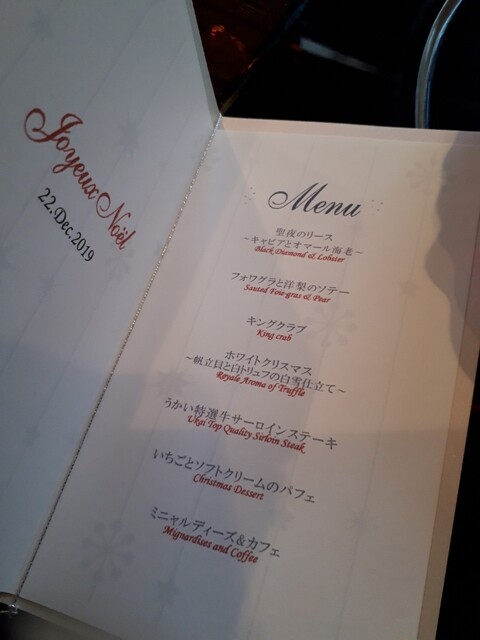 Joyeux Noël
22.Dec.2019
Menu
聖夜のリース
～キャビアとオマール海老～
Black Diamond & Lobster
フォワグラと洋梨のソテー
Sauted Foie-gras & Pear
キングクラブ
King crab
ホワイトクリスマス
～帆立貝と白トリュフの白雪仕立て～
Royale Aroma of Truffle
うかい特選牛サーロインステーキ
Ukai Top Quality Sirloin Steak
いちごとソフトクリームのパフェ
Christmas Dessert
ミニャルディーズ＆カフェ
Mignardises and Coffee